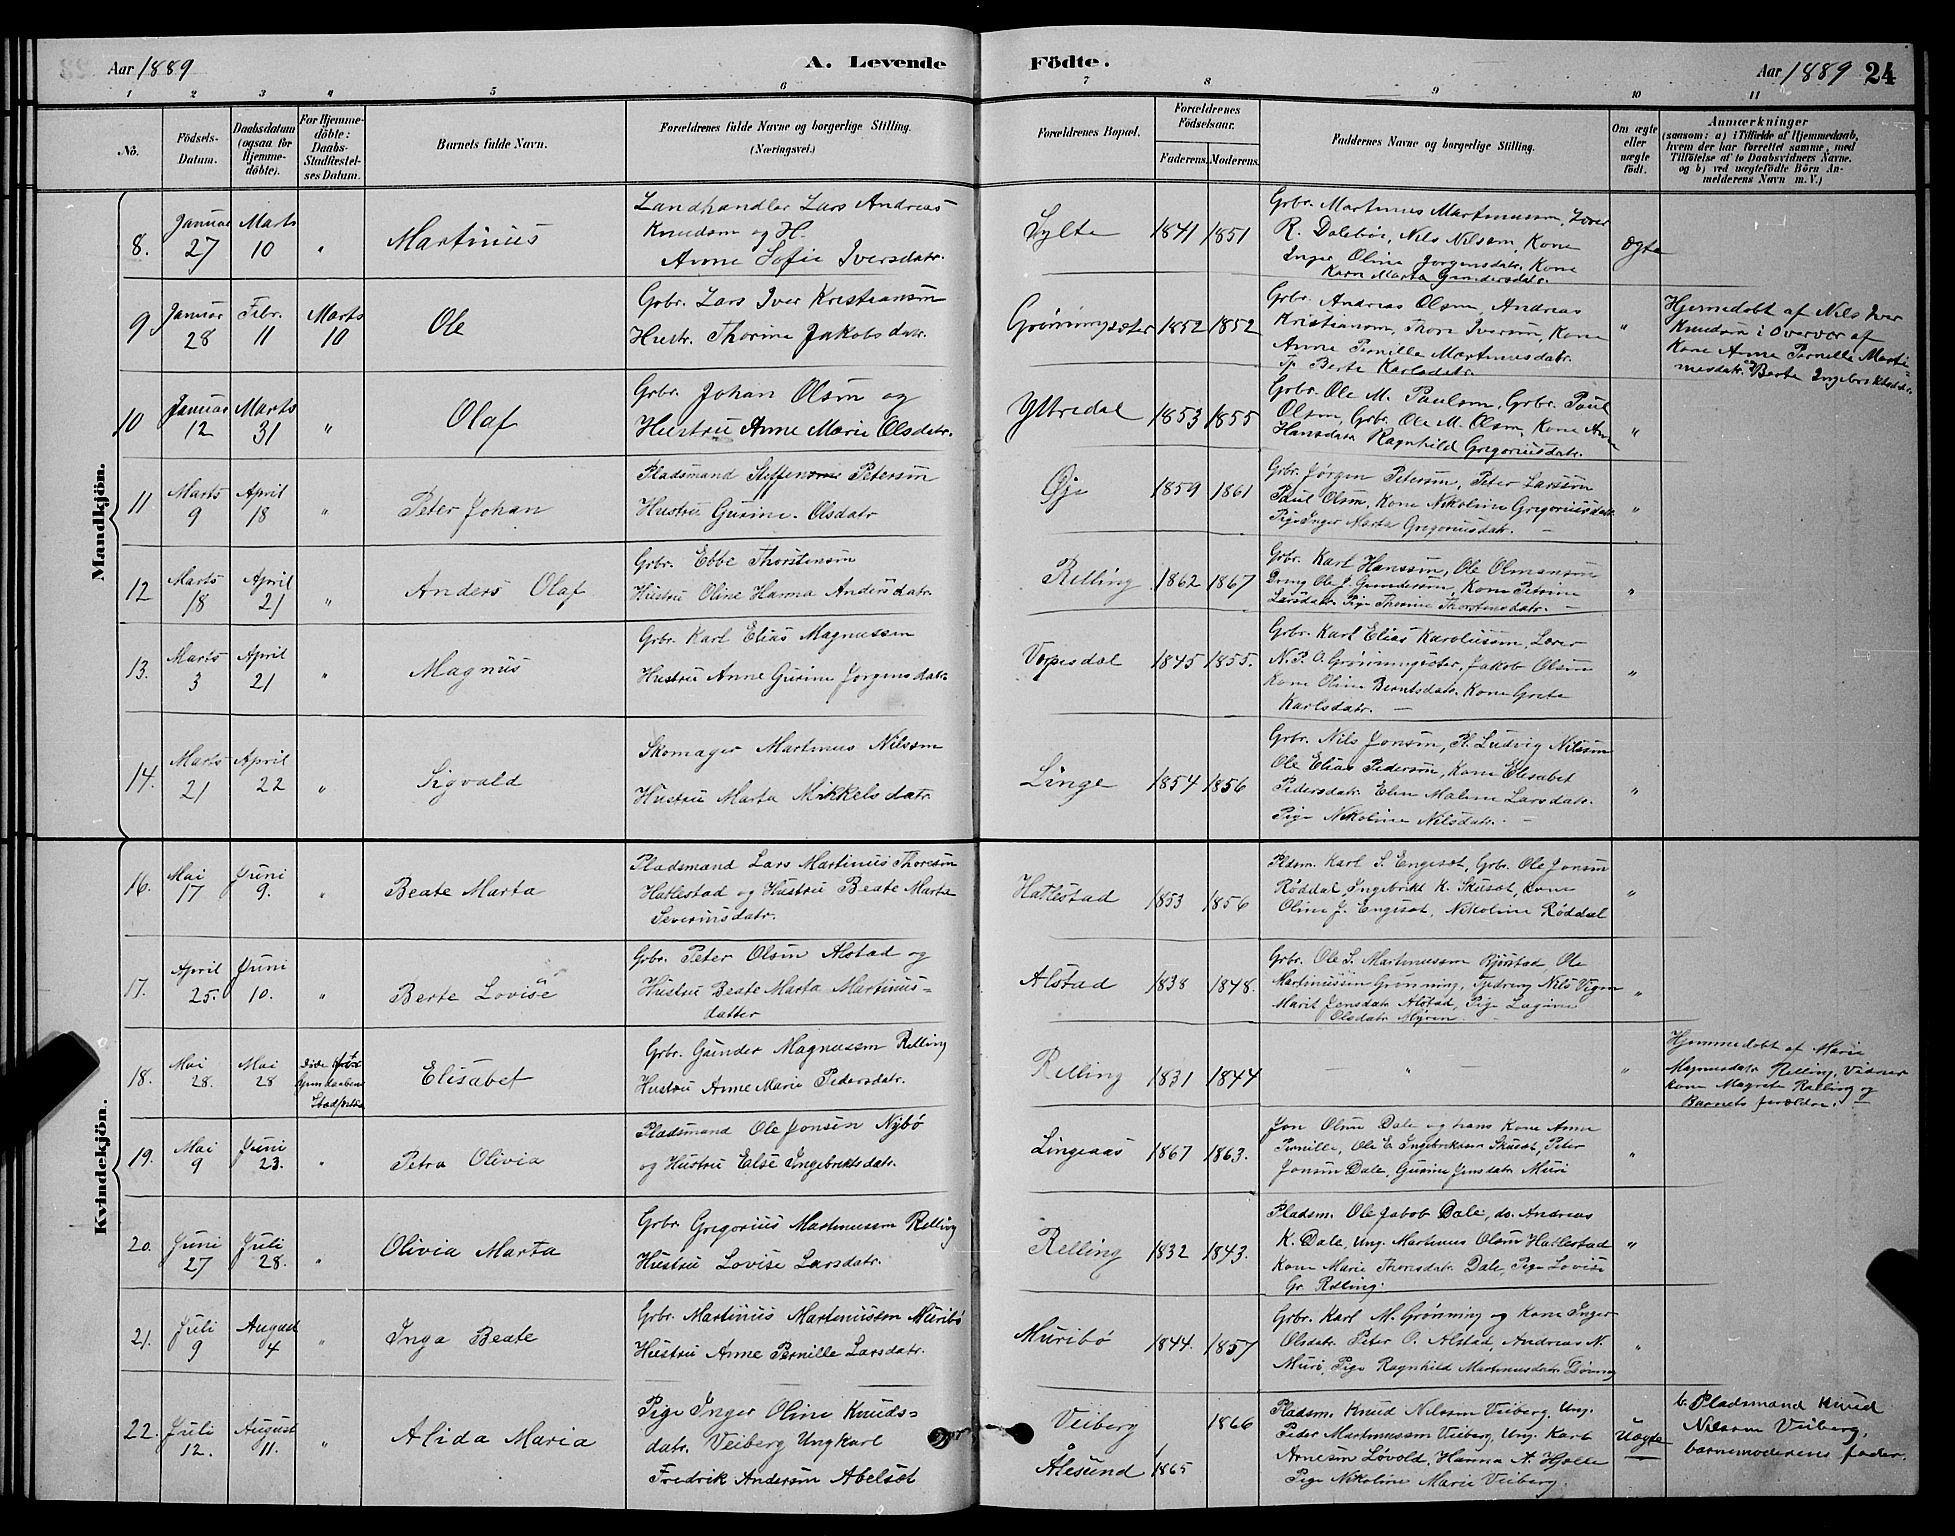 Aar 1889
A. Levende
Födte.
Aar 1889 24
1 2 3 4 5 6 7 8 9 10 11
No.
Födsels-
Datum.
Daabsdatum
(ogsaa for
Hjemme-
döbte).
For Hjemme-
döbte:
Daabs-
Stadfæstel-
ses Datum.
Barnets fulde Navn.
Forældrenes fulde Navne og borgerlige Stilling.
(Næringsvei.)
Forældrenes Bopæl.
Forældrenes
Födselsaar.
Faderens. Moderens.
Faddernes Navne og borgerlige Stilling.
Om ægte
eller
uægte
födt.
Anmærkninger
(saasom: a) i Tilfælde af Hjemmedaab,
hvem der har forrettet samme, med
Tilföielse af to Daabsvidners Navne.
og b) ved uægtefödte Börn An-
melderens Navn m. V.)
Mandkjön.
8.
Januar
27
Marts
10
"
Martinus
Landhandler Lars Andreas
Knudsen og H.
Anne Sofie Iversdatr.
Sylte
1841 1851
Grbr. Martinus Martinussen, Lærer
R. Dalebøe, Nils Nilsen, Kone
Inger Oline Jørgensdatr. Kone
Karn Marta Gundersdatr.
ægte
9
Januar
28
Febr.
11
Marts
10
Ole
Grbr. Lars Iver Kristiansen
Hustr. Thorine Jakobsdatr.
Grønningsæter
1852 1852
Grbr. Andreas Olsen, Andreas
Kristiansen, Thore Iversen, Kone
Anne Pernille Martinusdatr.
Berte Karlsdatr.
"
Hjemmedøbt af Nils Iver
Knudsen i Overvær af
Kone Anne Pernille Marti-
nusdatr. Berte Ingebriktsdatr.
10
Januar
12
Marts
31
"
Olaf
Grbr. Johan Olsen og
Hustru Anne Marie Olsdatr.
Yttredal
1853 1855
Grbr. Ole M. Paulsen, Grbr. Paul
Olsen, Grbr. Ole M. Olsen, Kone Ane
Hansdatr Ragnhild Gregoriusdatr.
"
11
Marts
9
April
18
"
Peter Johan
Pladsmand Steffen Petersen
Hustru Gurine Olsdatr
Øje
1859 1861
Grbr. Jørgen Petersen, Peter Larssen
Paul Olsen, Kone Nikoline Gregoriusdatr
Pige Inger Marta Gregoriusdatr. —
"
12
Marts
18
April
21
"
Anders Olaf
Grbr. Ebbe Thorstensen
Hustru Oline Hanna Andersdatr.
Relling
1862 1867
Grbr. Karl Hanssen, Ole Olmansen
Dreng Ole J. Gundersen, Kone Petrine
Larsdatr. Pige Thorine Thorstensdatr. —
"
13.
Marts
3
April
21
"
Magnus
Grbr. Karl Elias Magnussen
Hustru Anne Gurine Jørgensdatr
Verpesdal
1845 1855.
Grbr. Karl Elias Karolussen, Lærer
N. P. O. Grønningsæter, Jakob Olsen
Kone Oline Berntsdatr. Kone Grete
Karlsdatr. —
"
14.
Marts
21
April
22
"
Sigvald
Skomager Martinus Nilssen
Hustru Marta Mikkelsdatr
Linge
1854 1856
Grbr. Nils Jonsen, Pl. Ludvig Nilssen
Ole Elias Pedersen, Kone Elisabet
Pedersdatr. Elen Maline Larsdatr.
Pige Nikoline Nilsdatr. —
"
Kvindekjön.
16.
Mai
17
Juni
9.
"
Beate Marta
Pladsmand Lars Martinus Thoresen
Hatlestad og Hustru Beate Marta
Severinsdatr.
Hatlestad
1853 1856
Pldsm. Karl S. Engeset, Grbr. Ole Jonsen
Røddal, Ingebrikt K. Skuset, Kone
Oline J. Engeset, Nikoline Røddal
"
17.
April
25.
Juni
10.
"
Berte Lovise
Grbr. Peter Olsen Alstad og
Hustru Beate Marta Martinus-
datter
Alstad
1838 1848.
Grbr. Ole S. Martinussen Bjørstad, Ole
Martinussen Grønning, Tjdreng Nils Vigen
Marit Jensdatr Alstad, Pige Lagine
Olsdatr. Myren.
"
18.
Mai
28.
Mai
28
Elisabet
Grbr. Gunder Magnussen Relling
Hustru Anne Marie Pedersdatr.
Relling
1831 1844
— " —
"
Hjemmedøbt af Marie
Magnusdatr Relling, Vidner
Kone Magrete Relling og
Barnets forældre.
19.
Mai
9
Juni
23.
"
Petra Olivia
Pladsmand Ole Jonsen Nybø
og Hustru Else Ingebriktsdatr.
Lingeaas
1867 1863.
Jon Olsen Dale og hans Kone Anne
Pernille, Ole E. Ingebriktsen Skuset, Peter
Jonsen Dale, Gurine Jensdatr Muri
"
20.
Juni
27
Juli
28.
"
Olivia Marta
Grbr. Gregorius Martinussen Relling
Hustru Lovise Larsdatr.
Relling
1832 1843.
Pladsm. Ole Jakob Dale, do. Andreas
K. Dale, Ung. Martinus Olsen Hatlestad
Kone Marie Thoresdatr Dale, Pige Lovise
Gr. Relling.
"
21.
Juli
9
August
4
"
Inga Beate
Grbr. Martinus Martinussen Muribø
Hustru Anne Pernille Larsdatr.
Muribø
1844. 1857
Grbr. Karl M. Grønning og Kone Inger
Olsdatr. Peter O. Alstad, Andreas N.
Muri, Pige Ragnhild Martinusdatr. Døving
"
22.
Juli
12.
August
11.
"
Alida Maria
Pige Inger Oline Knuds-
datr. Veiberg Ungkarl
Fredrik Andersen Abelset
Veiberg
Ålesund
1865
1866
Pladsm. Knud Nilssen Veiberg, Ung.
Peder Martinussen Veiberg, Ung. Karl
Arnesen Løvold, Hanna A. Hjelle
Pige Nikoline Marie Veiberg.
Uægte
b. Pladsmand Knud
Nilssen Veiberg,
barnemoderens fader.